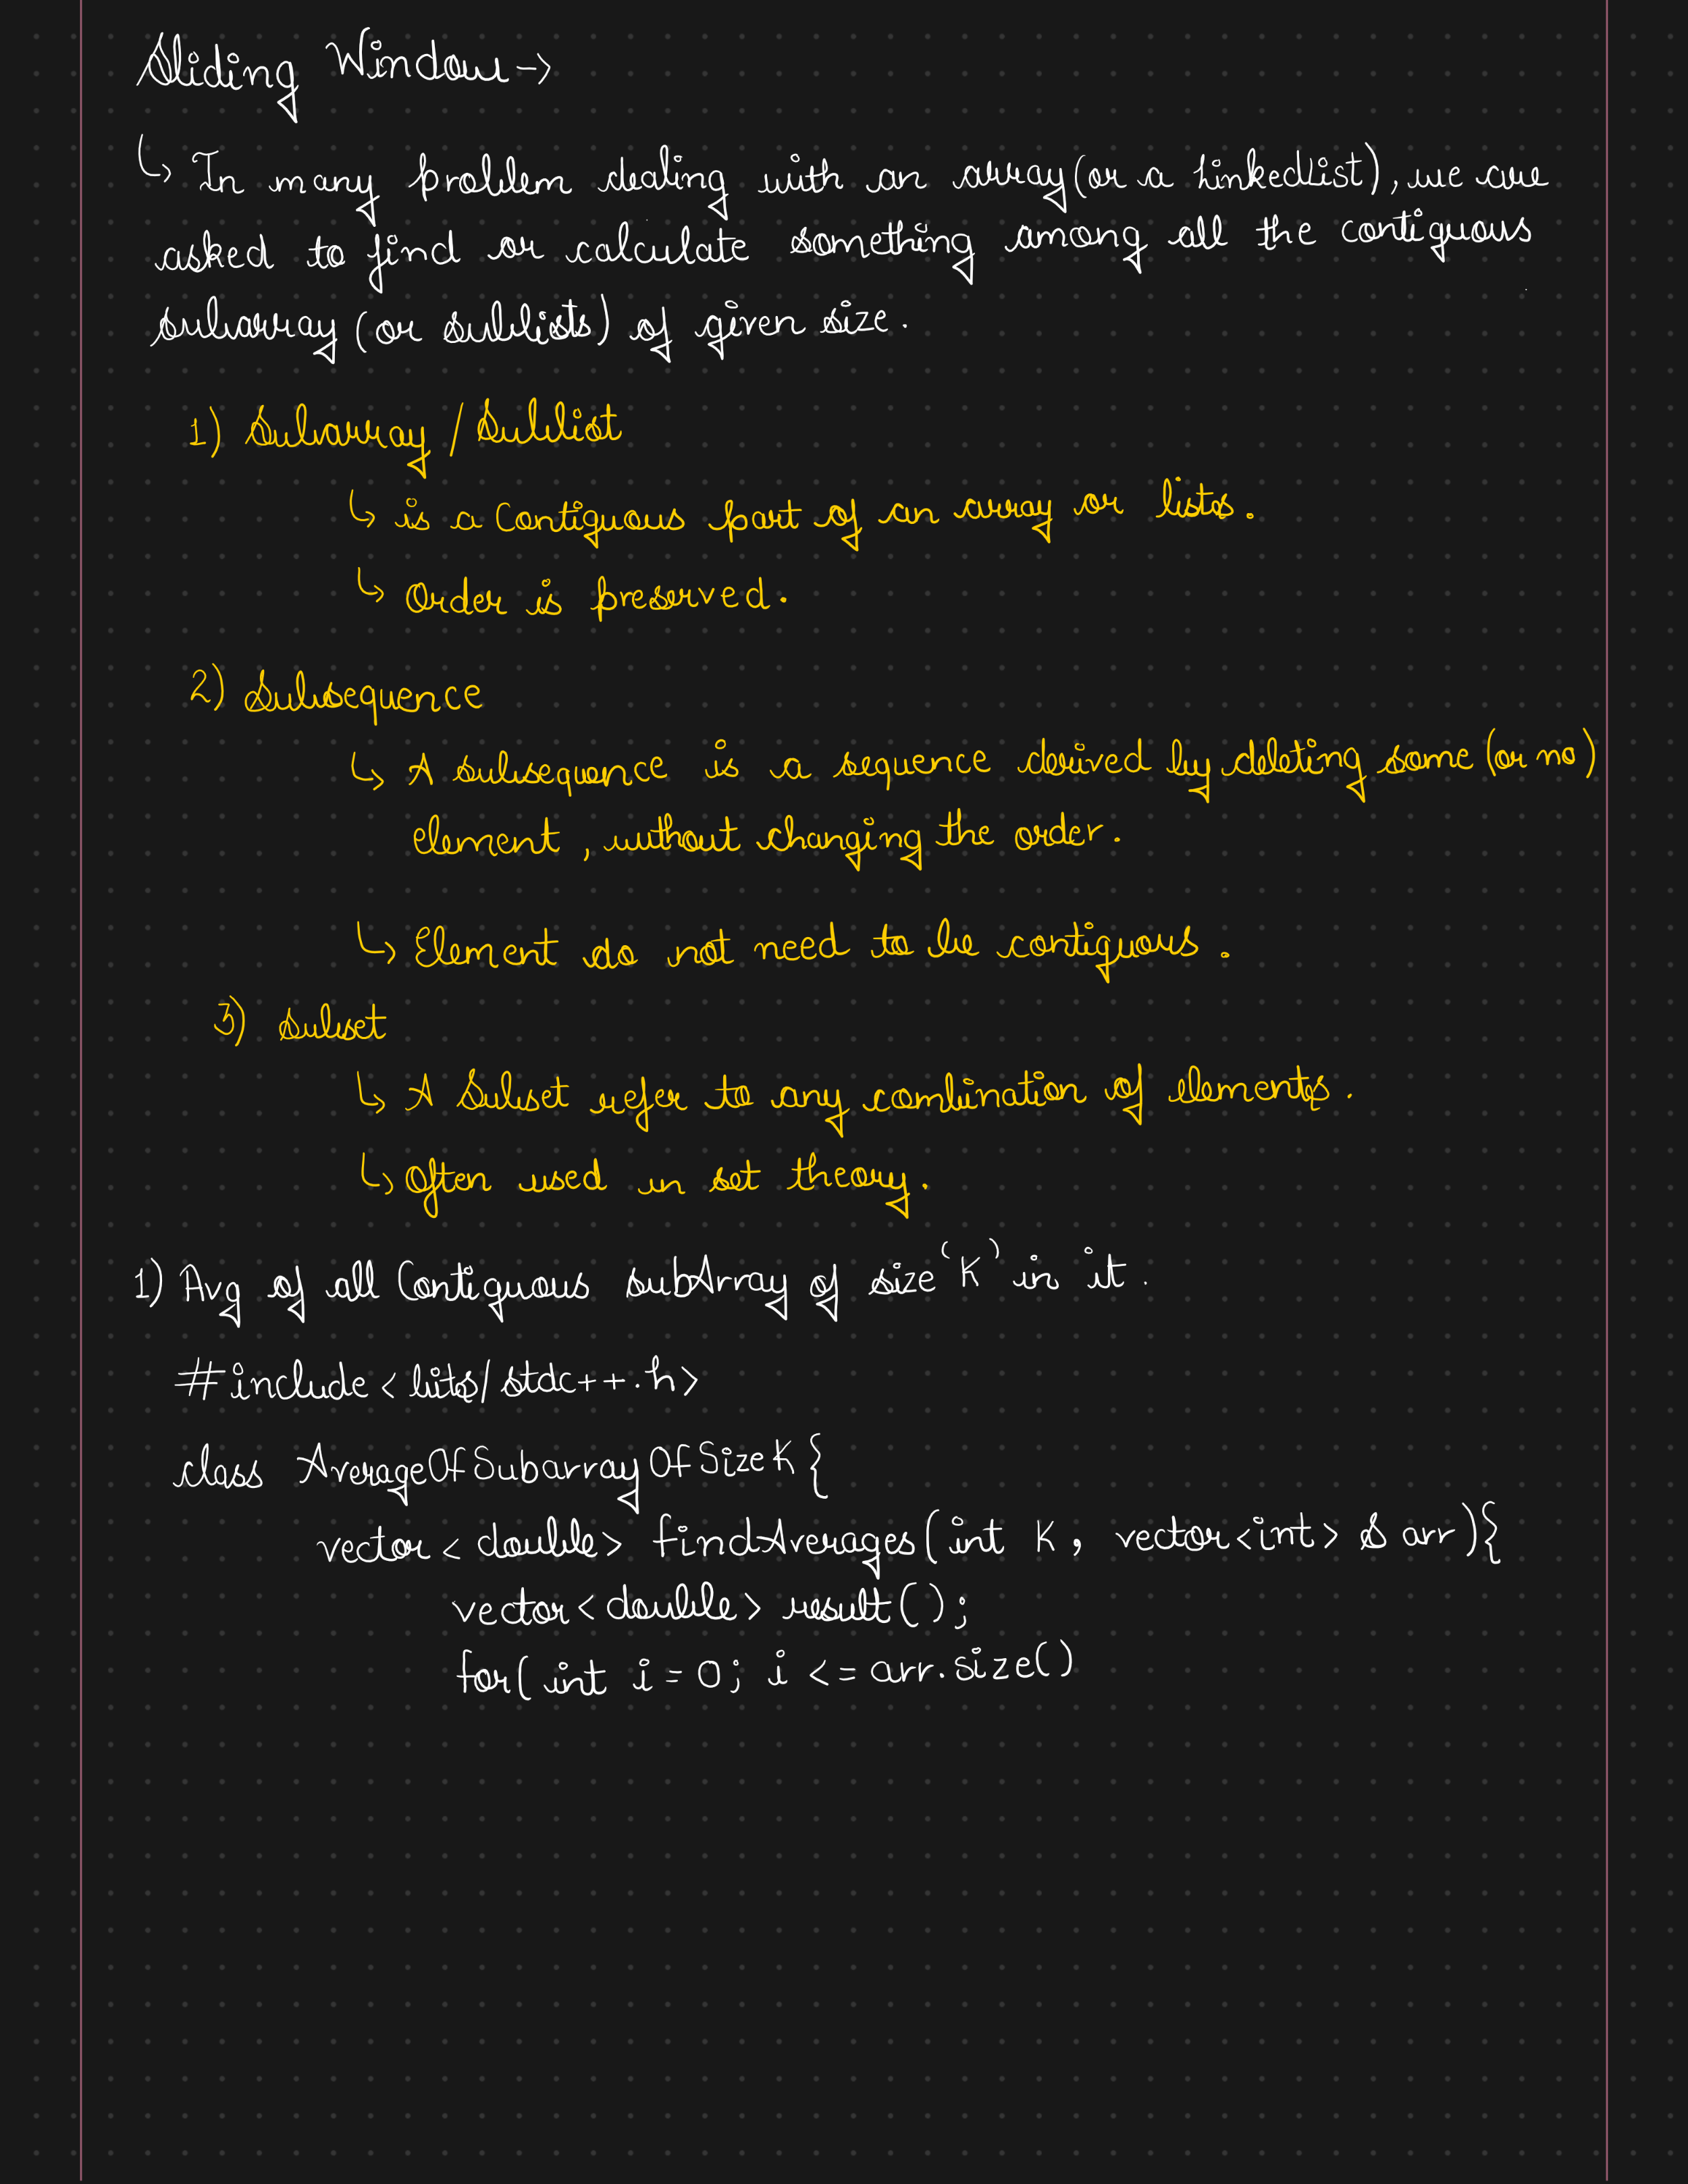 Sliding Window →
↳ In many problem dealing with an array (or a LinkedList), we are
asked to find or calculate something among all the contiguous
subarray (or sublists) of given size.
1) Subarray / Sublist
↳ is a Contiguous part of an array or lists.
↳ Order is preserved.
2) Subsequence
↳ A subsequence is a sequence derived by deleting some (or no)
element, without changing the order.
↳ Element do not need to be contiguous.
3) subset
↳ A Subset refer to any combination of elements.
↳ Often used in set theory.
1) Avg of all Contiguous subArray of size 'K' in it.
#include <bits/stdc++.h>
class AverageOfSubarrayOfSizeK {
vector<double> findAverages(int K, vector<int> & arr){
vector<double> result();
for( int i = 0; i <= arr.size()